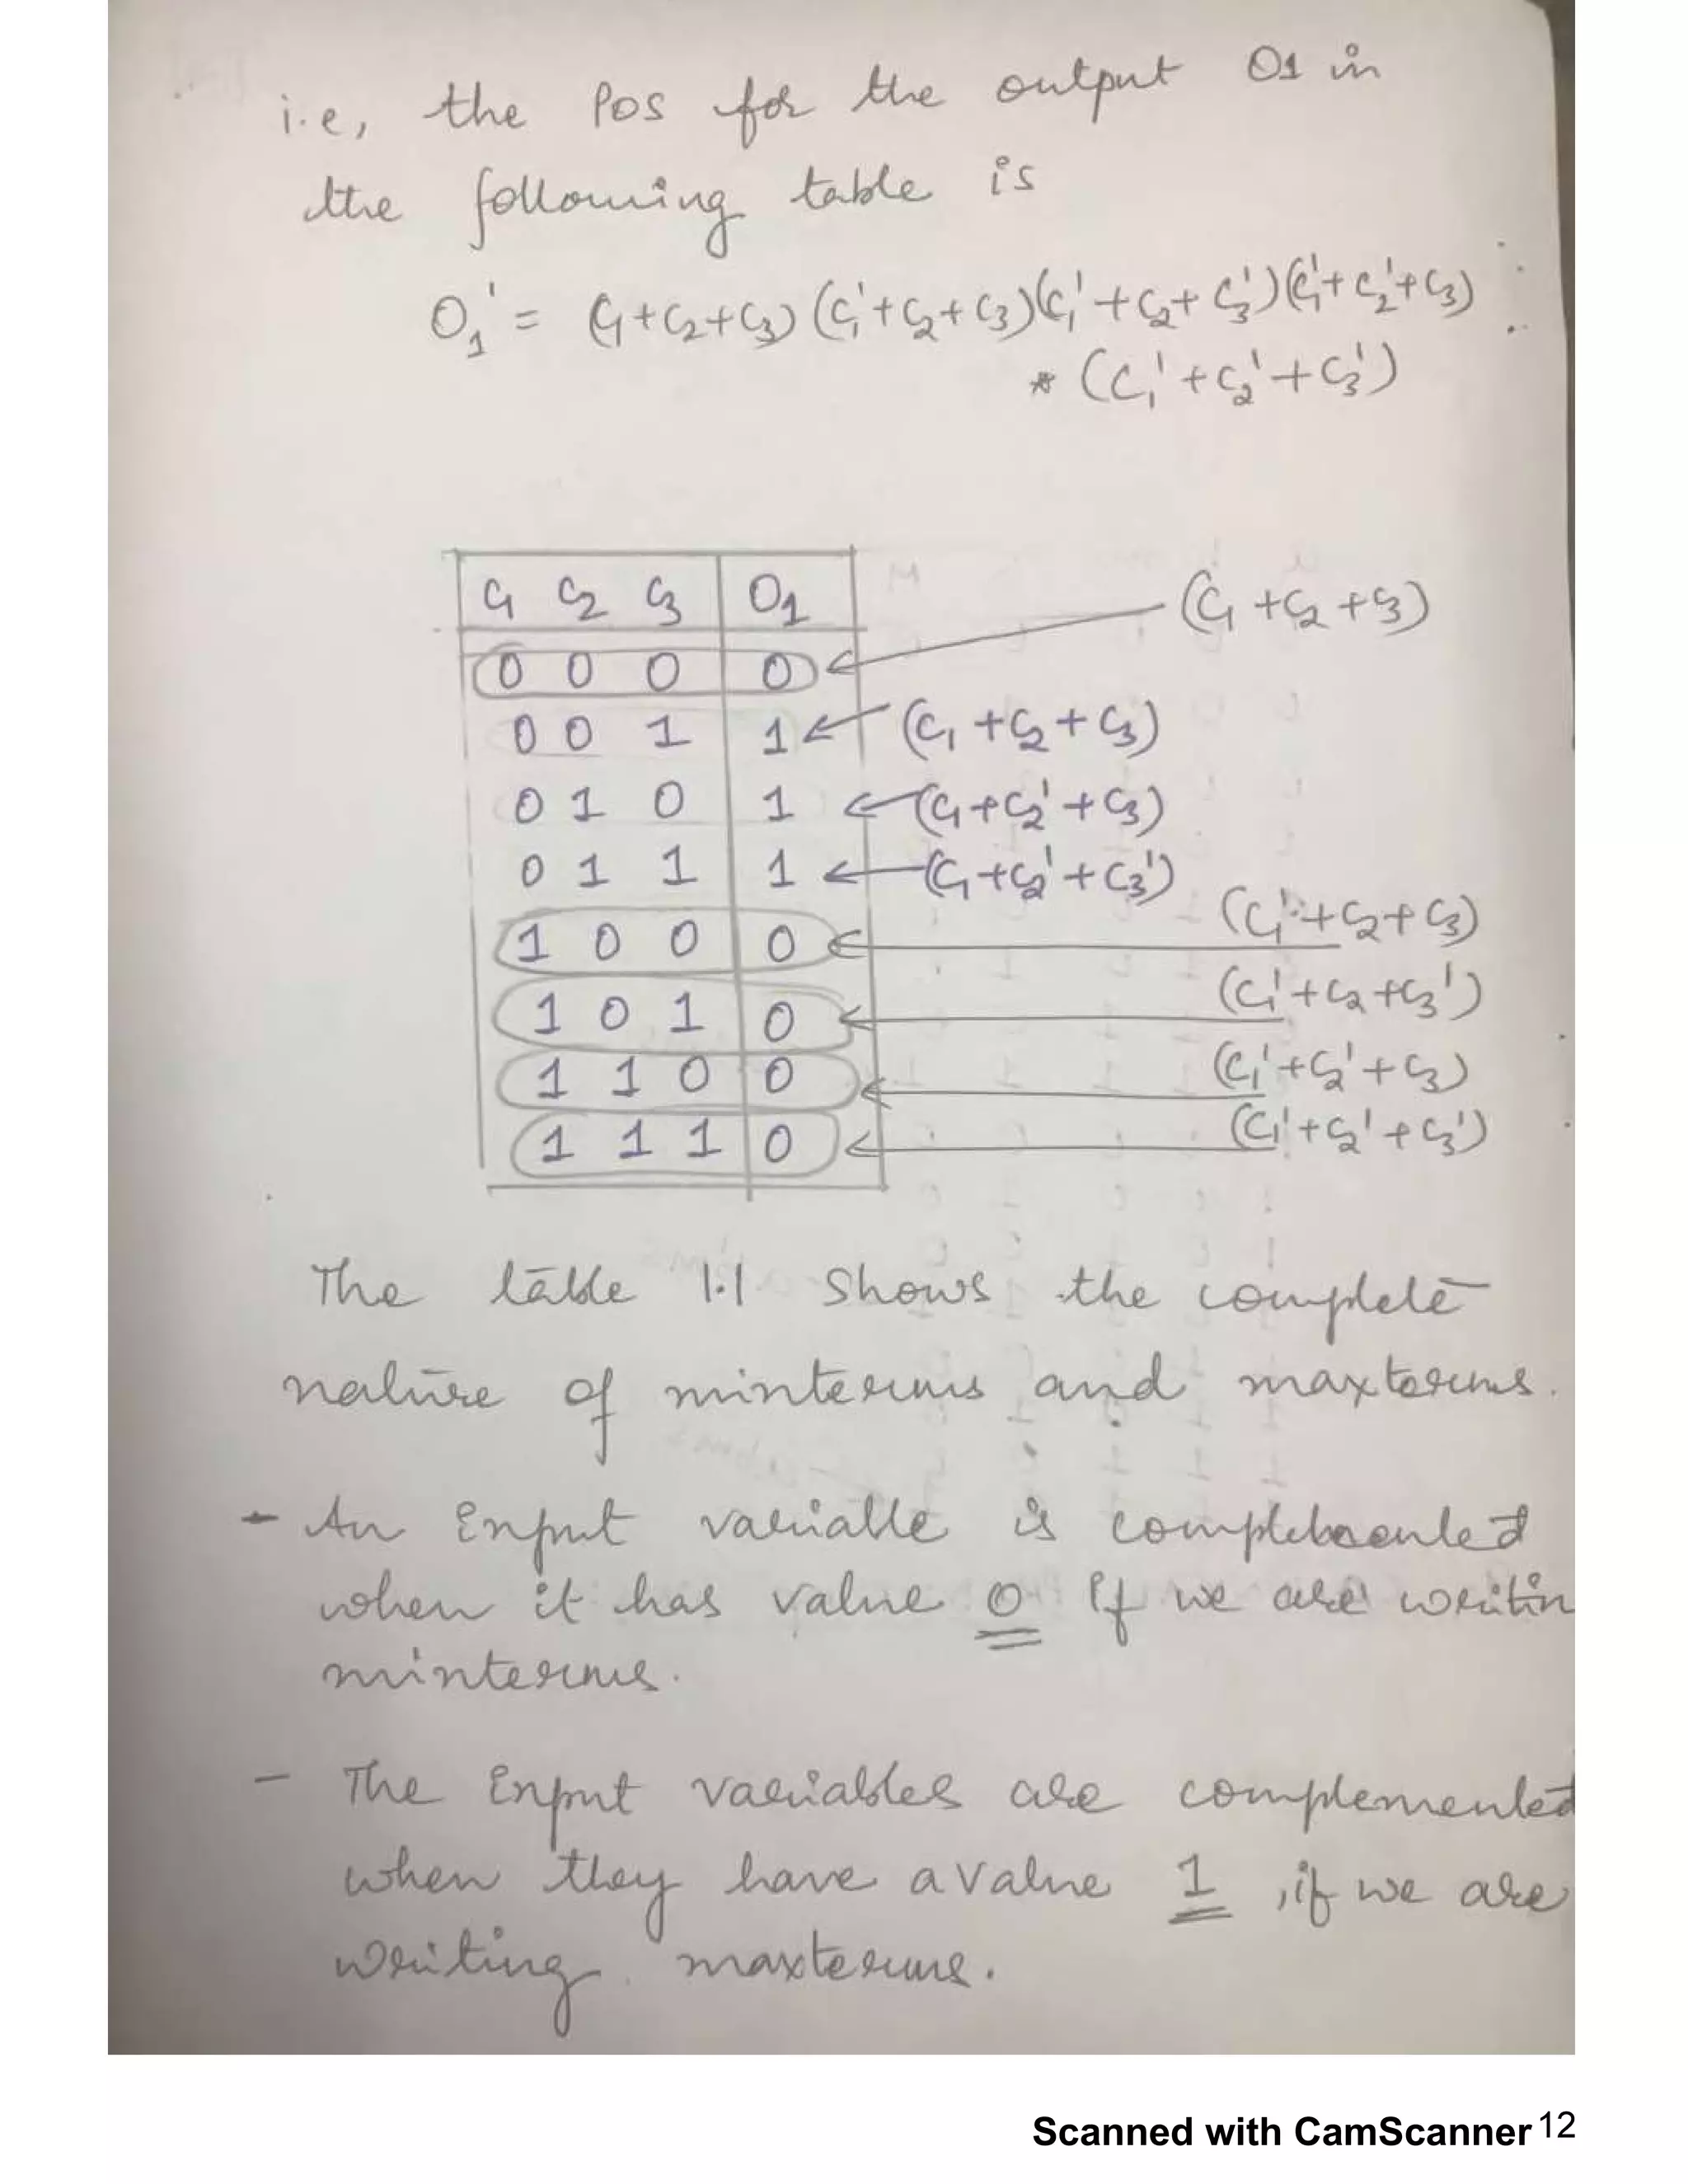 i.e, the POS for the output O1 in
the following table is
O₁' = (C₁+C₂+C₃) (C₁'+C₂+C₃)(C₁'+C₂+C₃')(C₁'+C₂'+C₃)
* (C₁'+C₂'+C₃')
C₁ C₂ C₃ O₁
(C₁+C₂+C₃)
0 0 0 0
0 0 1 1 (C₁+C₂+C₃)
0 1 0 1 (C₁+C₂'+C₃)
0 1 1 1 (C₁+C₂'+C₃')
1 0 0 0 (C₁'+C₂+C₃)
1 0 1 0 (C₁'+C₂+C₃')
1 1 0 0 (C₁'+C₂'+C₃)
1 1 1 0 (C₁'+C₂'+C₃')
The table 1.1 shows the complete
nature of minterms and maxterms.
- An Input variable is complemented
when it has value 0 If we are writin
minterms.
- The Input variables are complemented
when they have a value 1, if we are
writing maxterms.
Scanned with CamScanner 12